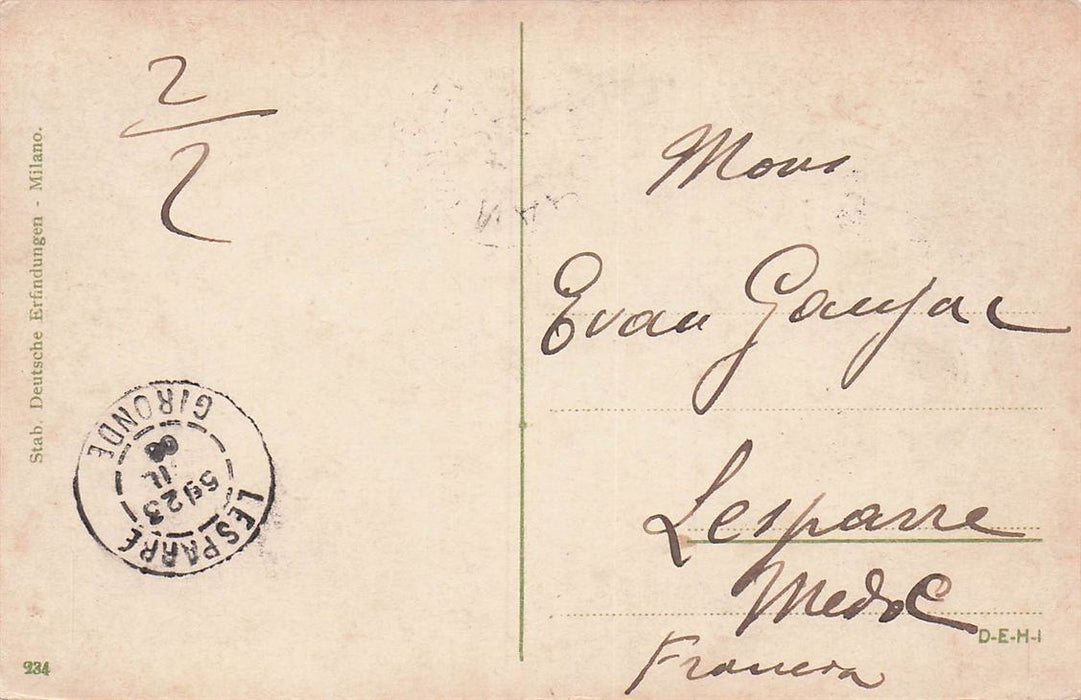 2/2
Stab. Deutsche Erfindungen - Milano.
GIRONDE
LESPARRE
23
234
Mons
Evan Gaujac
Lesparre
Medoc
Francia
D-E-H-I